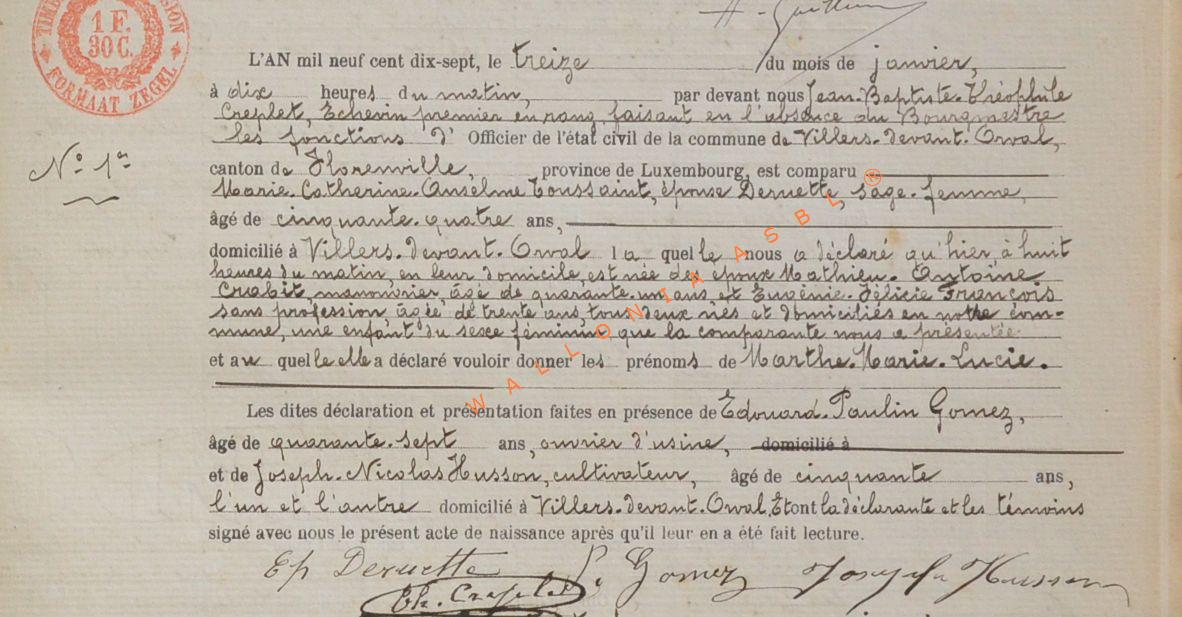 1 F.
30 C.
FORMAAT ZEGEL
L'AN mil neuf cent dix-sept, le treize du mois de janvier,
à dix heures du matin, par devant nous Jean-Baptiste-Théophile
Creplet, Echevin premier en rang, faisant en l'absence du Bourgmestre
les fonctions d' Officier de l'état civil de la commune de Villers-devant-Orval,
canton de Florenville, province de Luxembourg, est comparu
N° 1er
Marie-Catherine-Anselme Toussaint, épouse Deruette, sage-femme,
âgé de cinquante-quatre ans,
domicilié à Villers-devant-Orval la quelle nous a déclaré qu'hier, à huit
heures du matin, en leur domicile, est née des époux Mathieu-Antoine
Crabit, manouvrier, âgé de quarante-un ans, et Eugénie-Félicie François
sans profession âgée de trente ans, tous deux nés et domiciliés en notre com-
mune, une enfant du sexe féminin que la comparante nous a présentée
et au quel le elle a déclaré vouloir donner les prénoms de Marthe-Marie-Lucie.
Les dites déclaration et présentation faites en présence de Edouard-Paulin Gomez,
âgé de quarante-sept ans, ouvrier d'usine, domicilié à
et de Joseph-Nicolas Husson, cultivateur, âgé de cinquante ans,
l'un et l'autre domicilié à Villers-devant-Orval, Et ont la déclarante et les témoins
signé avec nous le présent acte de naissance après qu'il leur en a été fait lecture.
Ep Deruette P. Gomez Joseph Husson
Th. Creplet
WALLONIA ASBL ®